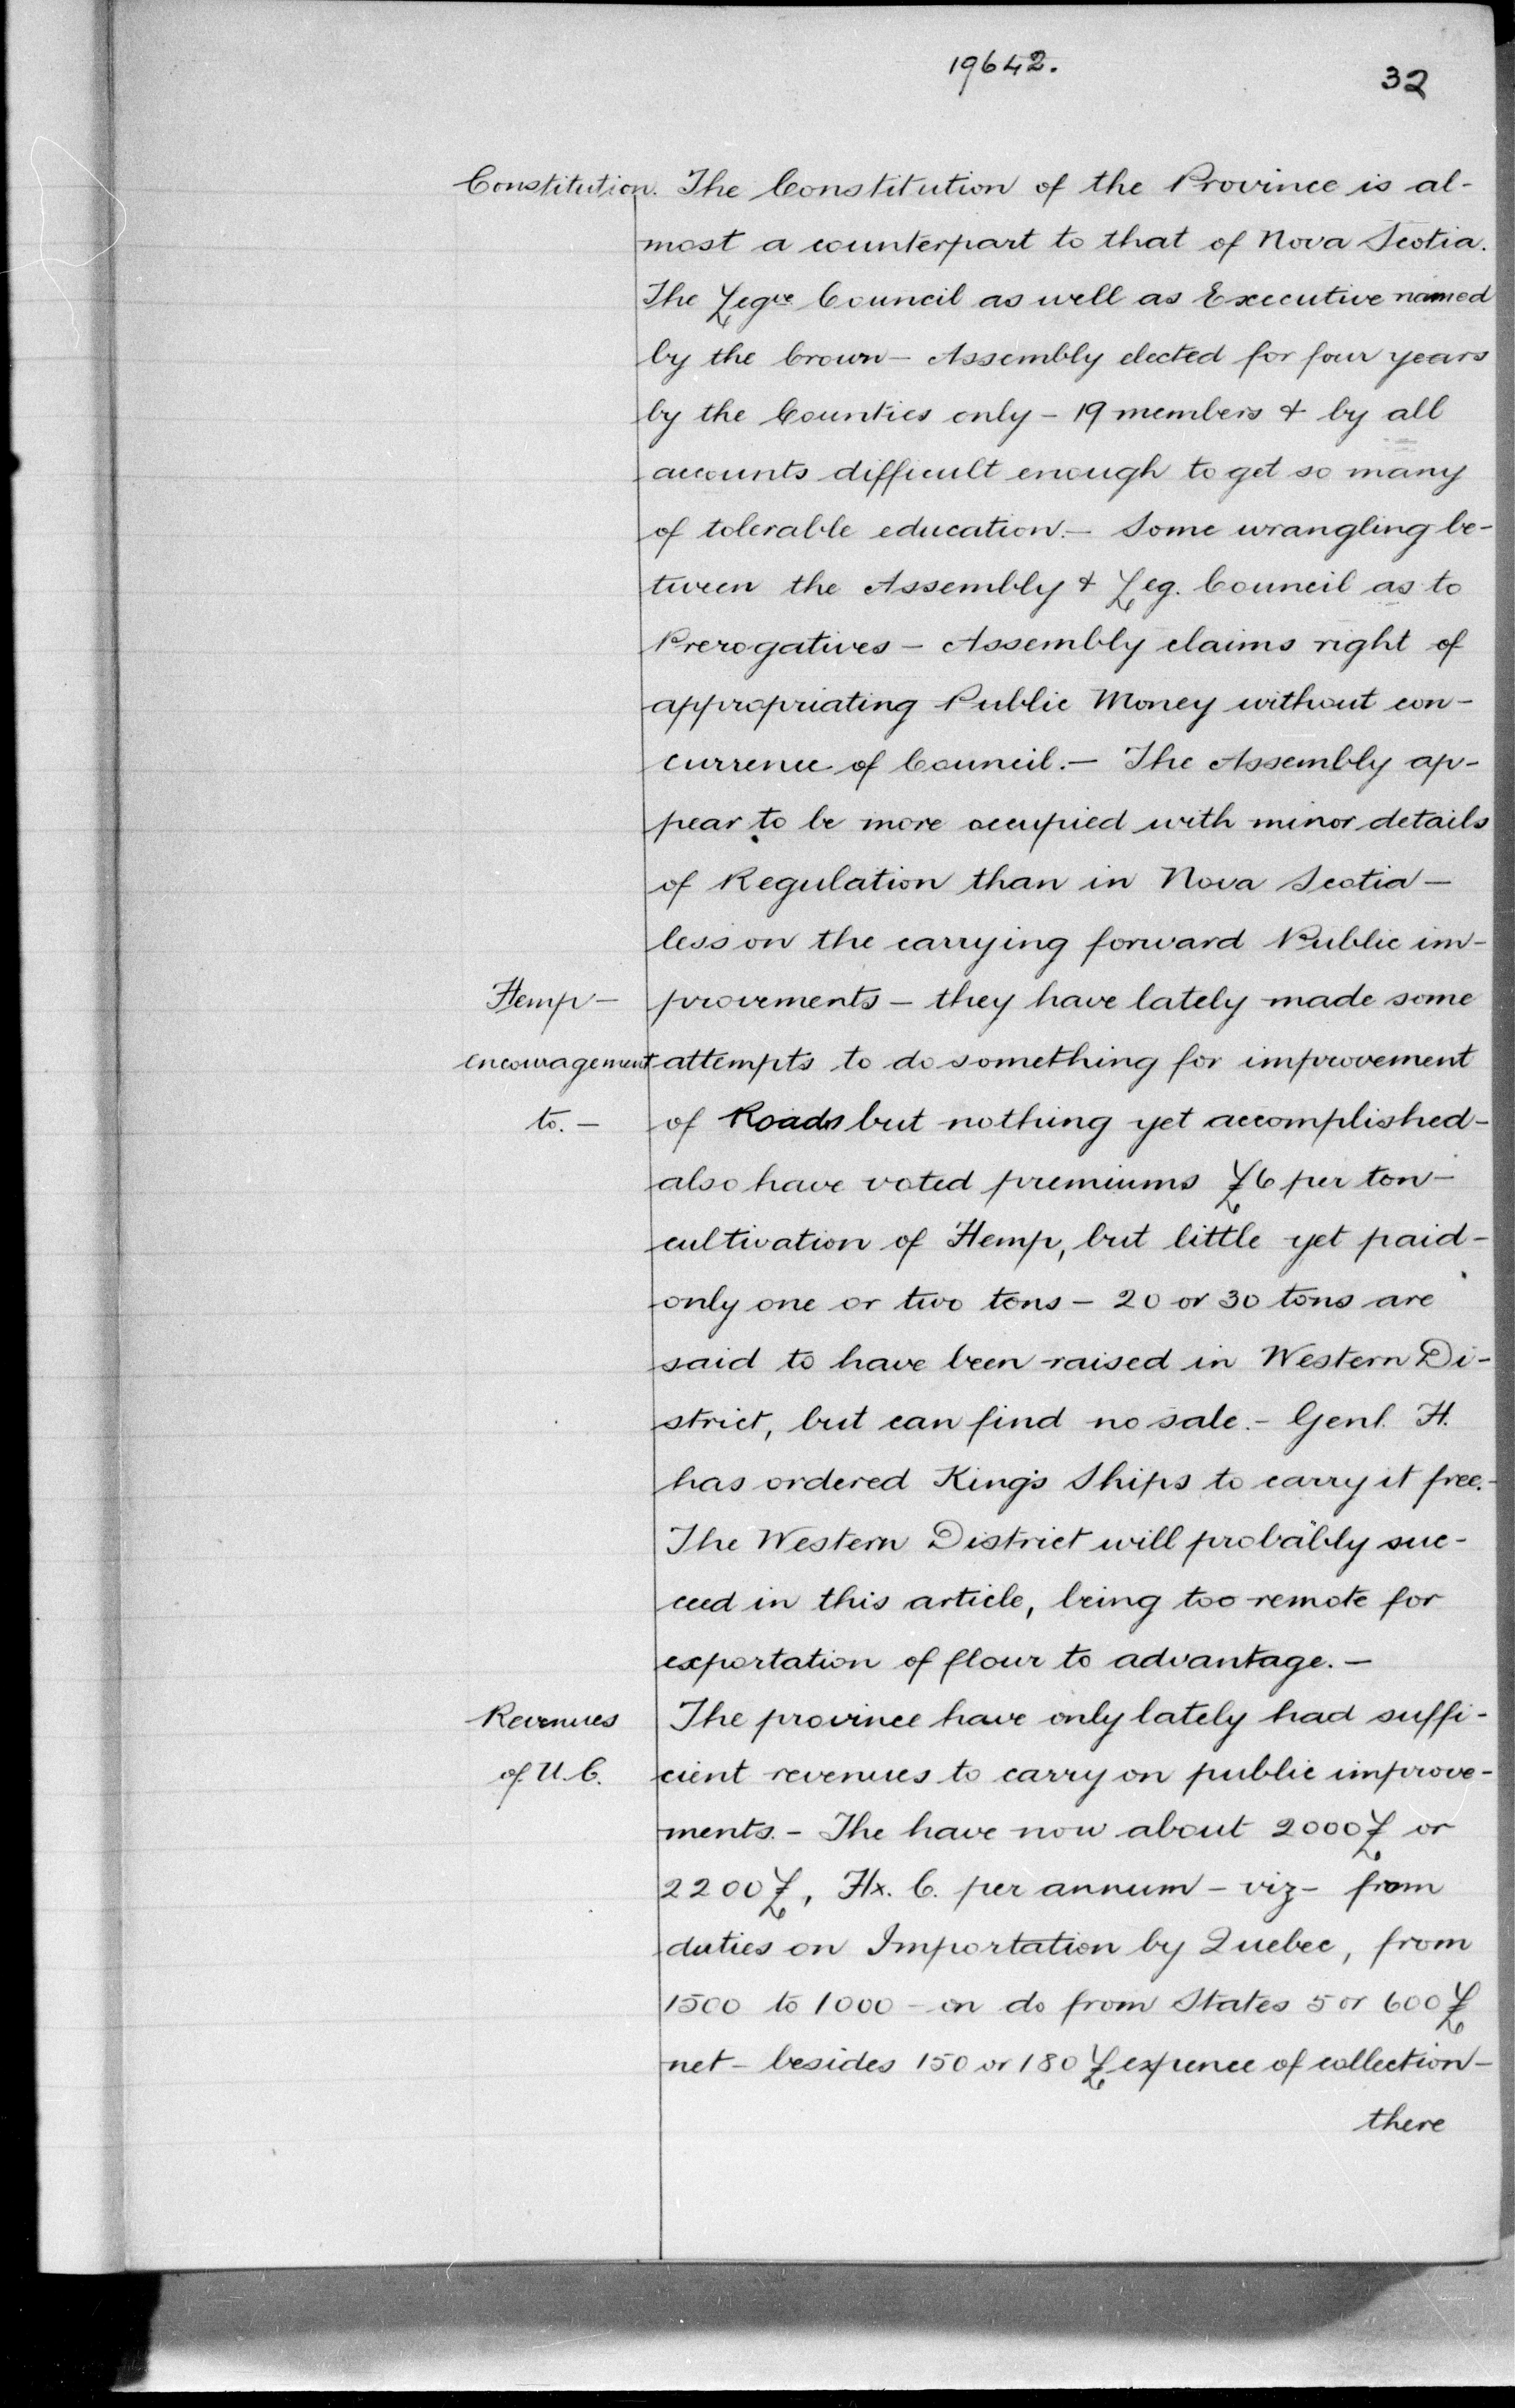 19642.
32
Constitution. The Constitution of the Province is al-
most a counterpart to that of Nova Scotia.
The Legve Council as well as Executive named
by the Crown – Assembly elected for four years
by the Counties only – 19 members & by all
accounts difficult enough to get so many
of tolerable education. – Some wrangling be-
tween the Assembly & Leg. Council as to
Prerogatives – Assembly claims right of
appropriating Public Money without con-
currence of Council. – The Assembly ap-
pear to be more occupied with minor details
of Regulation than in Nova Scotia –
less on the carrying forward Public im-
Hemp – provements – they have lately made some
encouragement attempts to do something for improvement
to. – of Roads but nothing yet accomplished –
also have voted premiums £6 per ton –
cultivation of Hemp, but little yet paid –
only one or two tons – 20 or 30 tons are
said to have been raised in Western Di-
strict, but can find no sale. – Genl. H.
has ordered King's Ships to carry it free. –
The Western District will probably suc-
ceed in this article, being too remote for
exportation of flour to advantage. –
Revenues The province have only lately had suffi-
of U.C. cient revenues to carry on public improve-
ments. – The have now about 2000£ or
2200£, Hx. C. per annum – viz – from
duties on Importation by Quebec, from
1500 to 1000 – on do from States 5 or 600£
net – besides 150 or 180£ expence of collection –
there